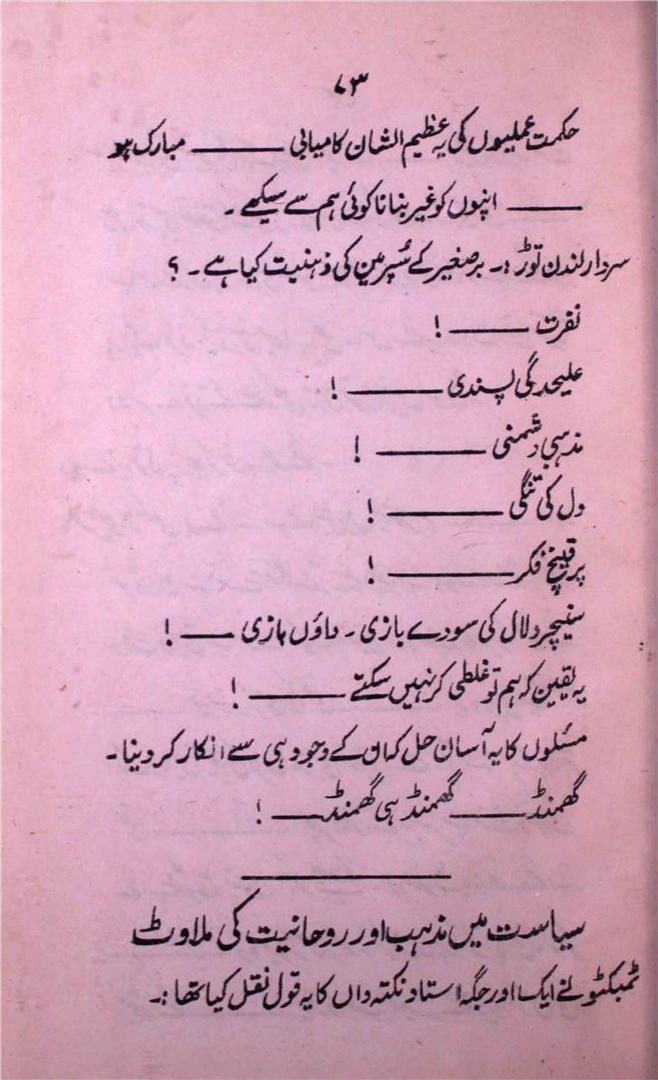 ۷۳
حکمت عملیوں کی یہ عظیم الشان کامیابی ——— مبارک ہو
——— اپنوں کو غیر بنانا کوئی ہم سے سیکھے ۔
سردار لندن توڑ :۔ برصغیر کے سُپر مین کی ذہنیت کیا ہے ۔ ؟
نفرت ——— !
علیحدگی پسندی ——— !
مذہبی دشمنی ——— !
دل کی تنگی ——— !
پر قینچ فکر ——— !
سنیچر دلال کی سودے بازی ۔ داؤں بازی ——— !
یہ یقین کہ ہم تو غلطی کر نہیں سکتے ——— !
مسئلوں کا یہ آسان حل کہ ان کے وجود ہی سے انکار کر دینا ۔
گھمنڈ ——— گھمنڈ ہی گھمنڈ ——— !
سیاست میں مذہب اور روحانیت کی ملاوٹ
ٹمبکٹو نے ایک اور جگہ استاد نکتہ داں کا یہ قول نقل کیا تھا :۔